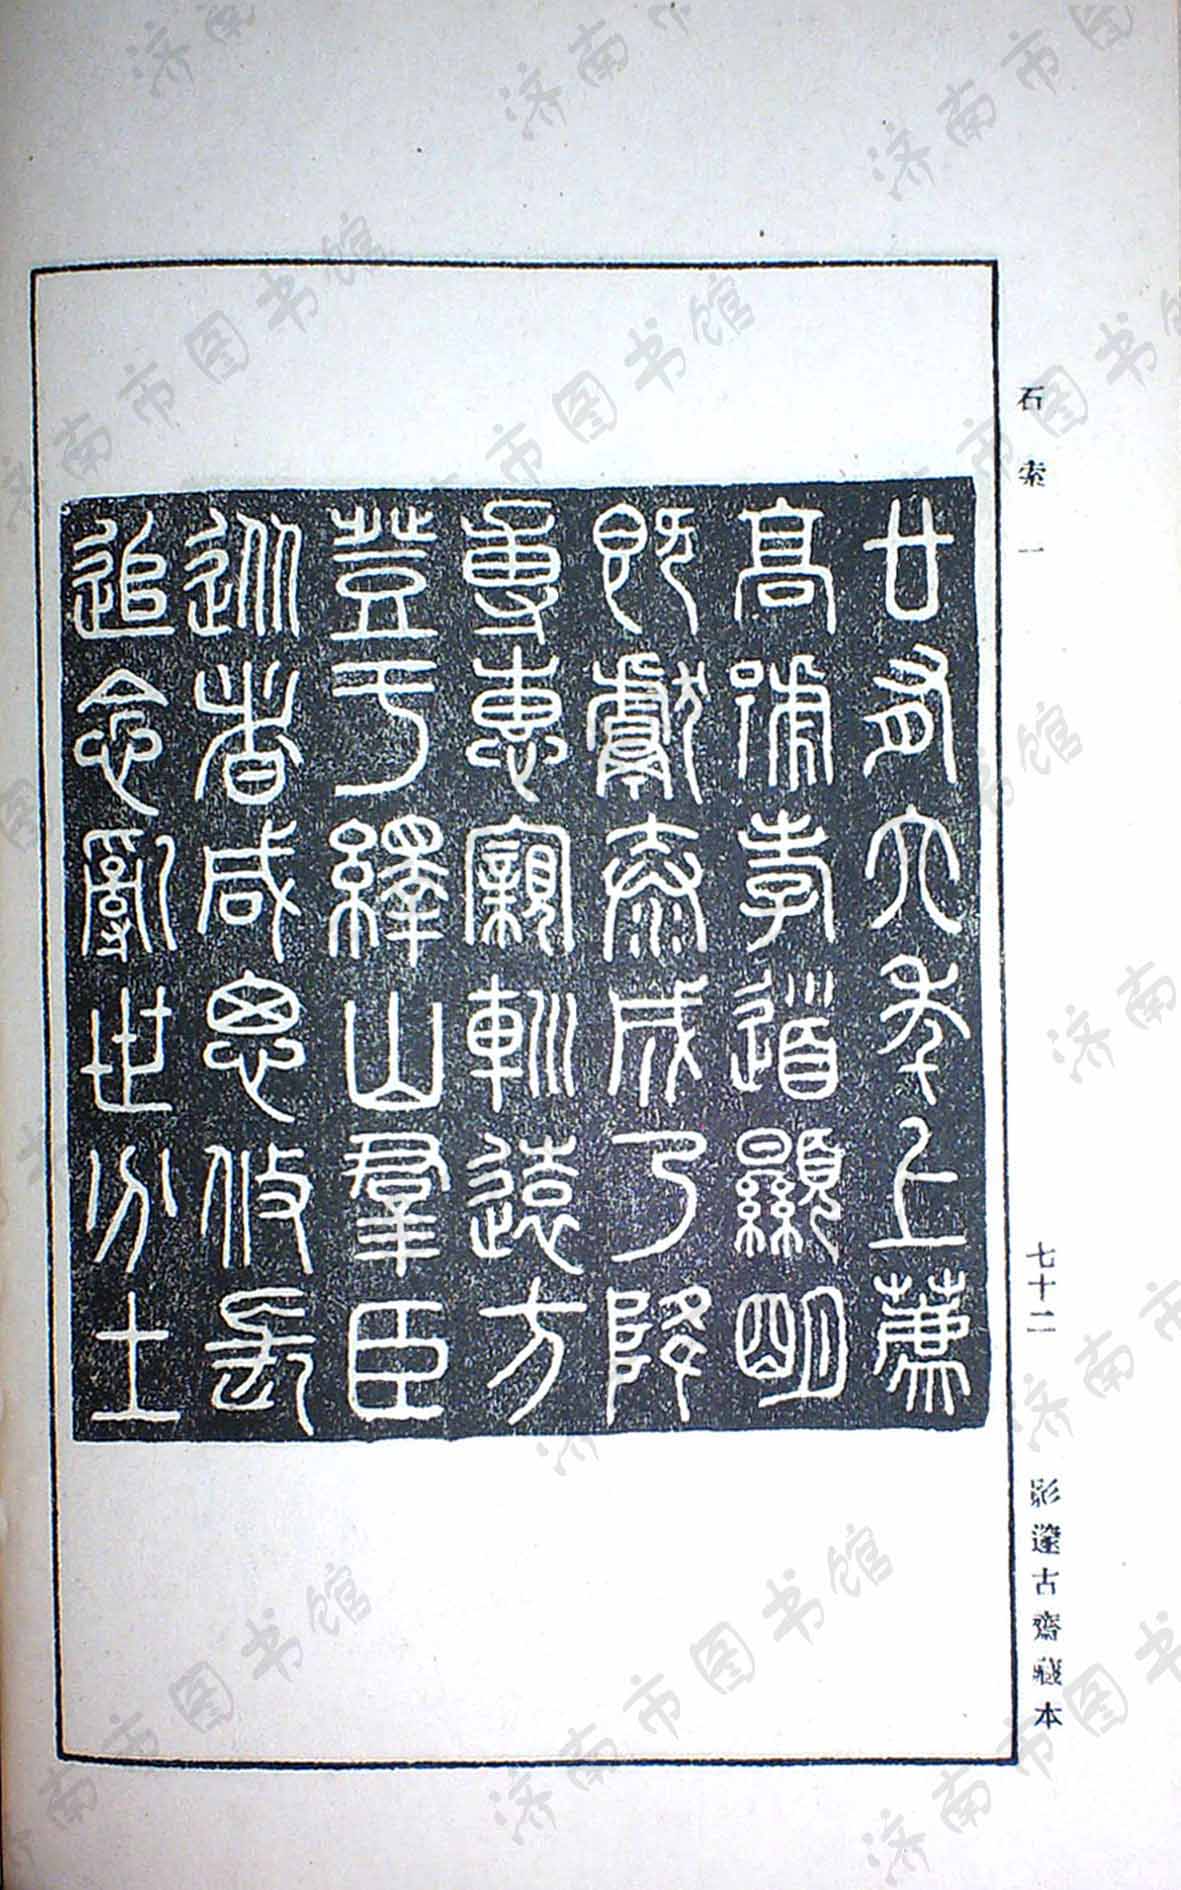 石索一
七十二
影邃古齋藏本
廿有六年上薦
高號孝道顯明
既獻泰成乃降
專惠寴䡅遠方
登于繹山羣臣
從者咸思攸長
追念亂世分土
济南市图书馆